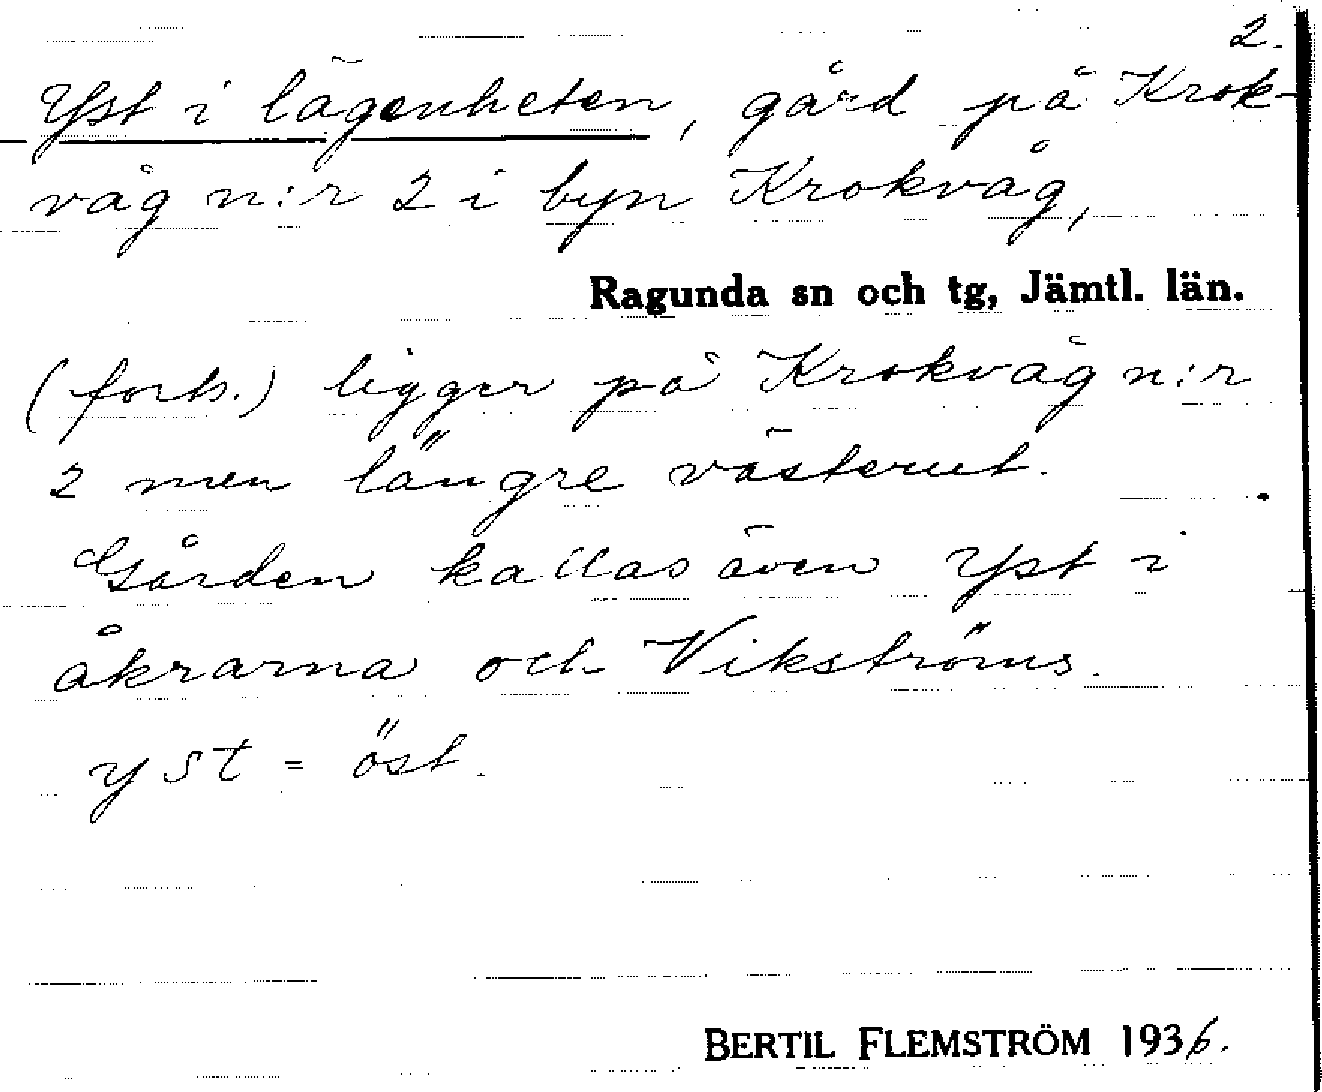 2.
Yst i lägenheten, gård på Krok-
våg n:r 2 i byn Krokvåg,
Ragunda sn och tg, Jämtl. län.
(forts.) ligger på Krokvåg n:r
2 men längre västerut.
Gården kallas även Yst i
åkrarna och Vikströms.
yst = öst.
BERTIL FLEMSTRÖM 1936.